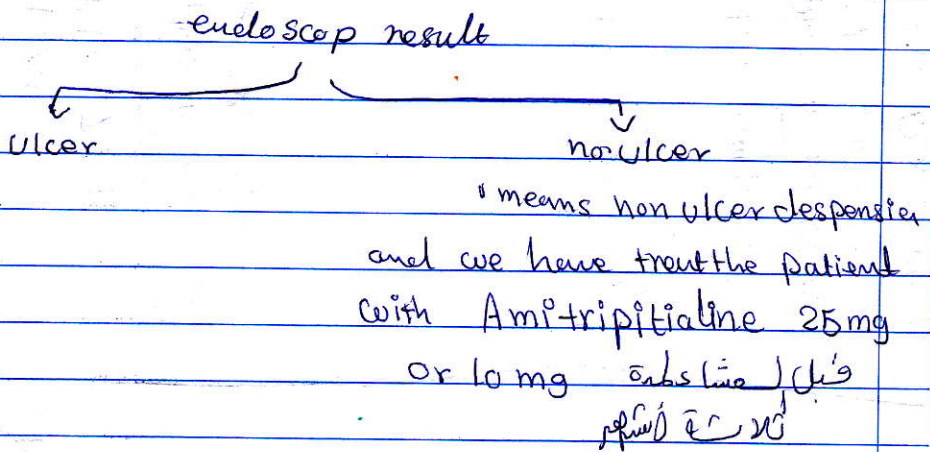 endoscop result
Ulcer
no ulcer
means non ulcer despensia
and we have treat the patient
with Amitripitialine 25 mg
or 10 mg قبل العشا حبة
ثلاثة أشهر